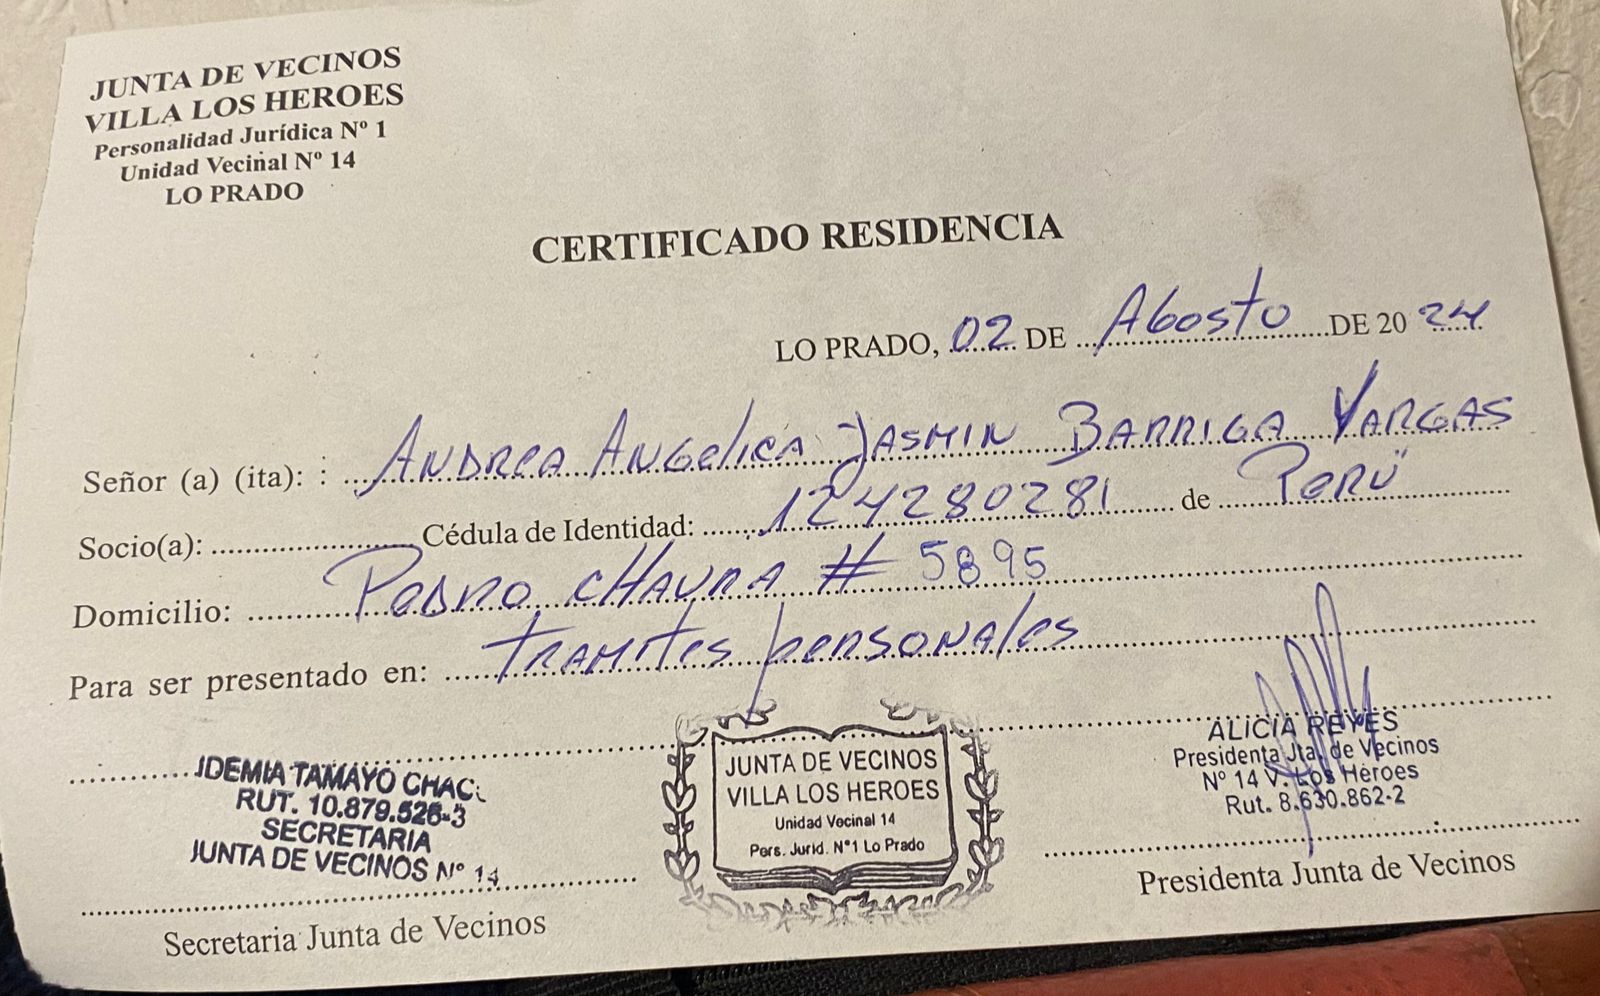 JUNTA DE VECINOS
VILLA LOS HEROES
Personalidad Jurídica Nº 1
Unidad Vecinal Nº 14
LO PRADO
CERTIFICADO RESIDENCIA
LO PRADO, 02 DE Agosto DE 20 24
Señor (a) (ita): : ANDREA ANGELICA JASMIN BARRIGA VARGAS
Socio(a): Cédula de Identidad: 124280281 de PERÚ
Domicilio: PEDRO CHAURA # 5895
Para ser presentado en: TRAMITES PERSONALES
IDEMIA TAMAYO CHAC
RUT. 10.879.526-3
SECRETARIA
JUNTA DE VECINOS Nº 14
Secretaria Junta de Vecinos
JUNTA DE VECINOS
VILLA LOS HEROES
Unidad Vecinal 14
Pers. Jurid. N°1 Lo Prado
ALICIA REYES
Presidenta Jta. de Vecinos
Nº 14 V. Los Héroes
Rut. 8.630.862-2
Presidenta Junta de Vecinos